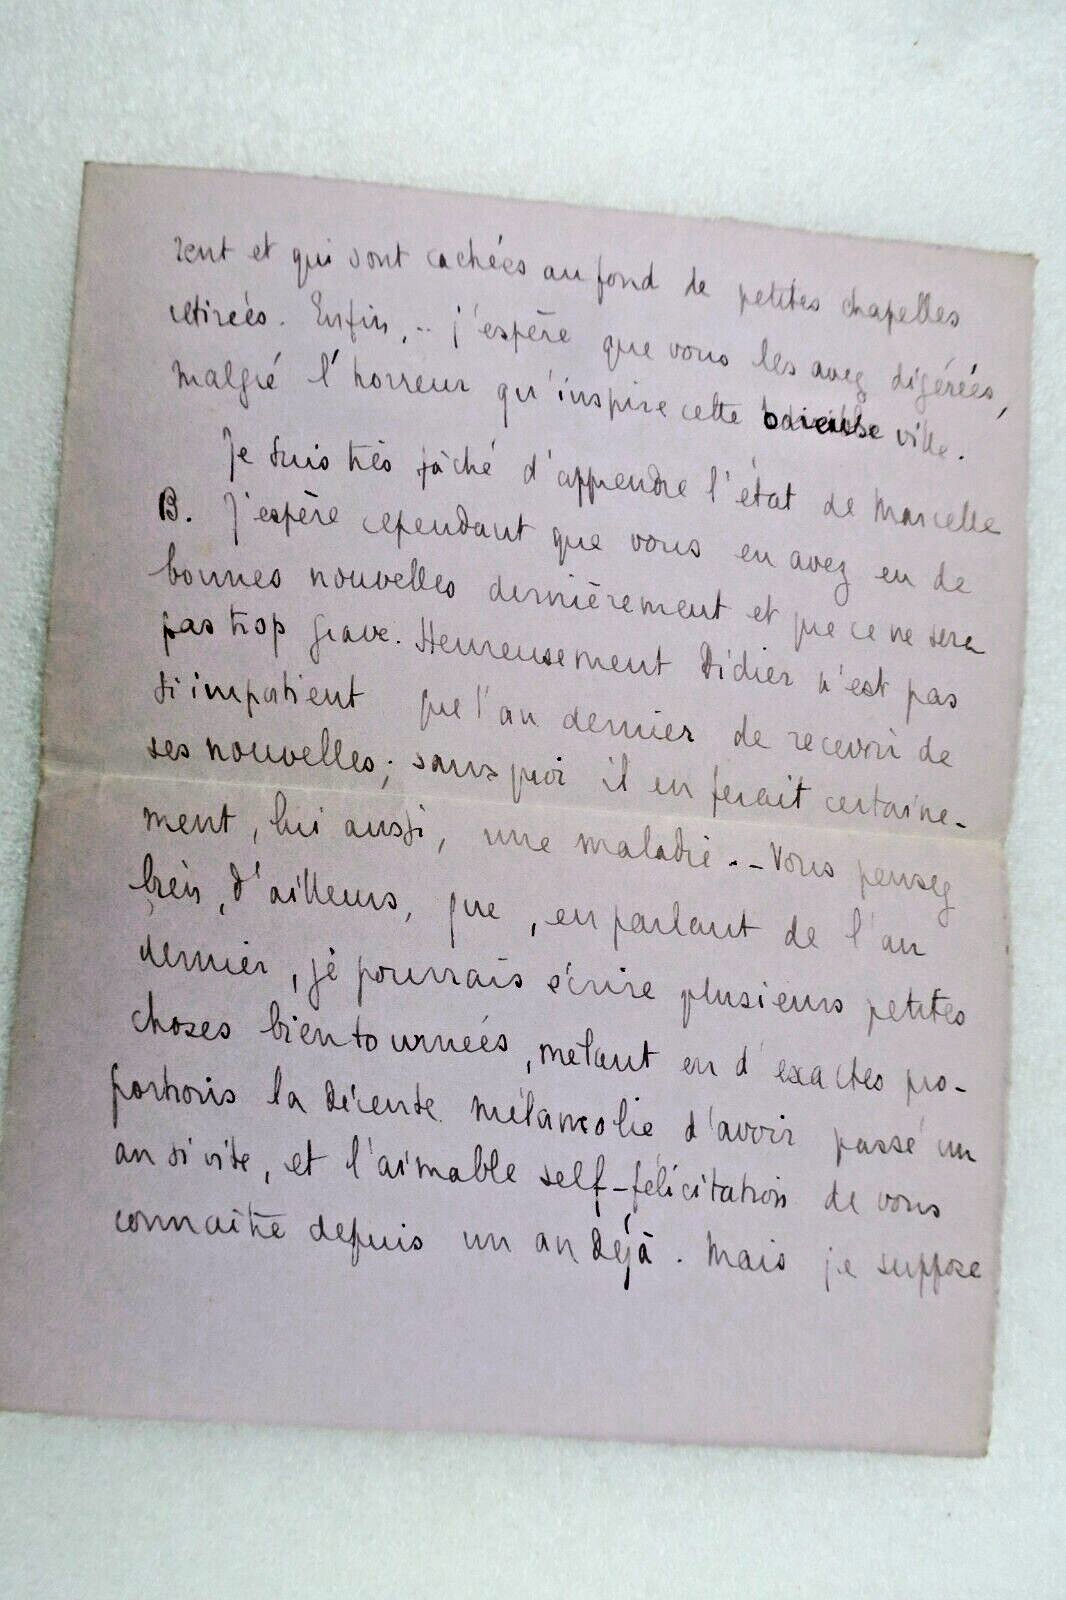 rent et qui sont cachées au fond de petites chapelles
retirées. Enfin, .. j'espère que vous les avez digérées,
malgré l'horreur qu'inspire cette ville.
Je suis très fâché d'apprendre l'état de Marcelle
B. J'espère cependant que vous en avez eu de
bonnes nouvelles dernièrement et que ce ne sera
pas trop grave. Heureusement Didier n'est pas
si impatient que l'an dernier de recevoir de
ses nouvelles; sans quoi il en ferait certaine-
ment, lui aussi, une maladie.-- Vous pensez
bien, d'ailleurs, que, en parlant de l'an
dernier, je pourrais écrire plusieurs petites
choses bien tournées, mêlant en d'exactes pro-
portions la décente mélancolie d'avoir passé un
an si vite, et l'aimable self-félicitation de vous
connaître depuis un an déjà. Mais je suppose